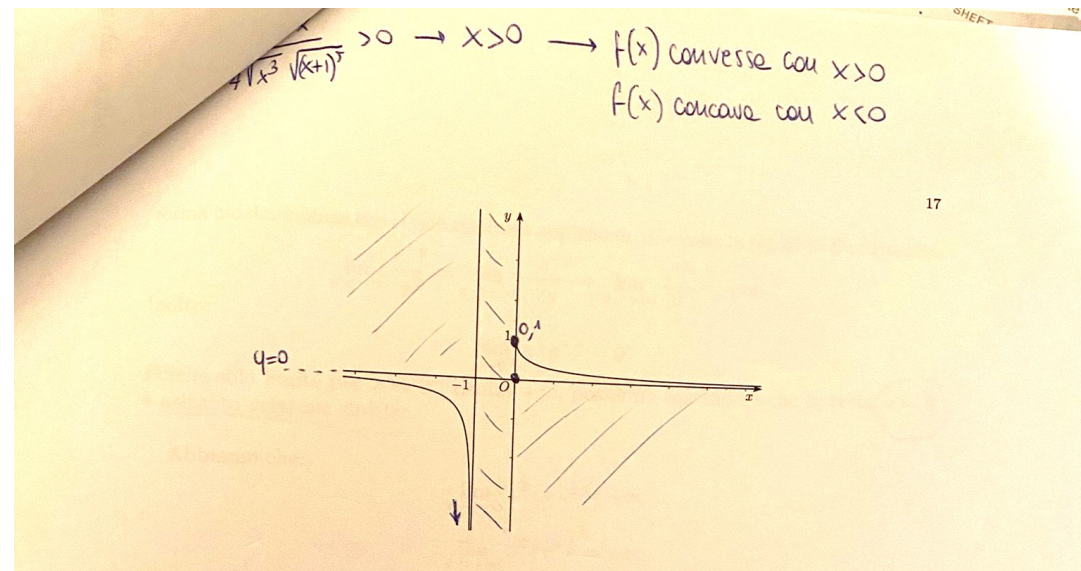 SHEET
x
4√x³ √(x+1)⁵ >0 → x>0 → f(x) convessa con x>0
f(x) concava con x<0
17
y
1 0,1
y=0
-1 O x